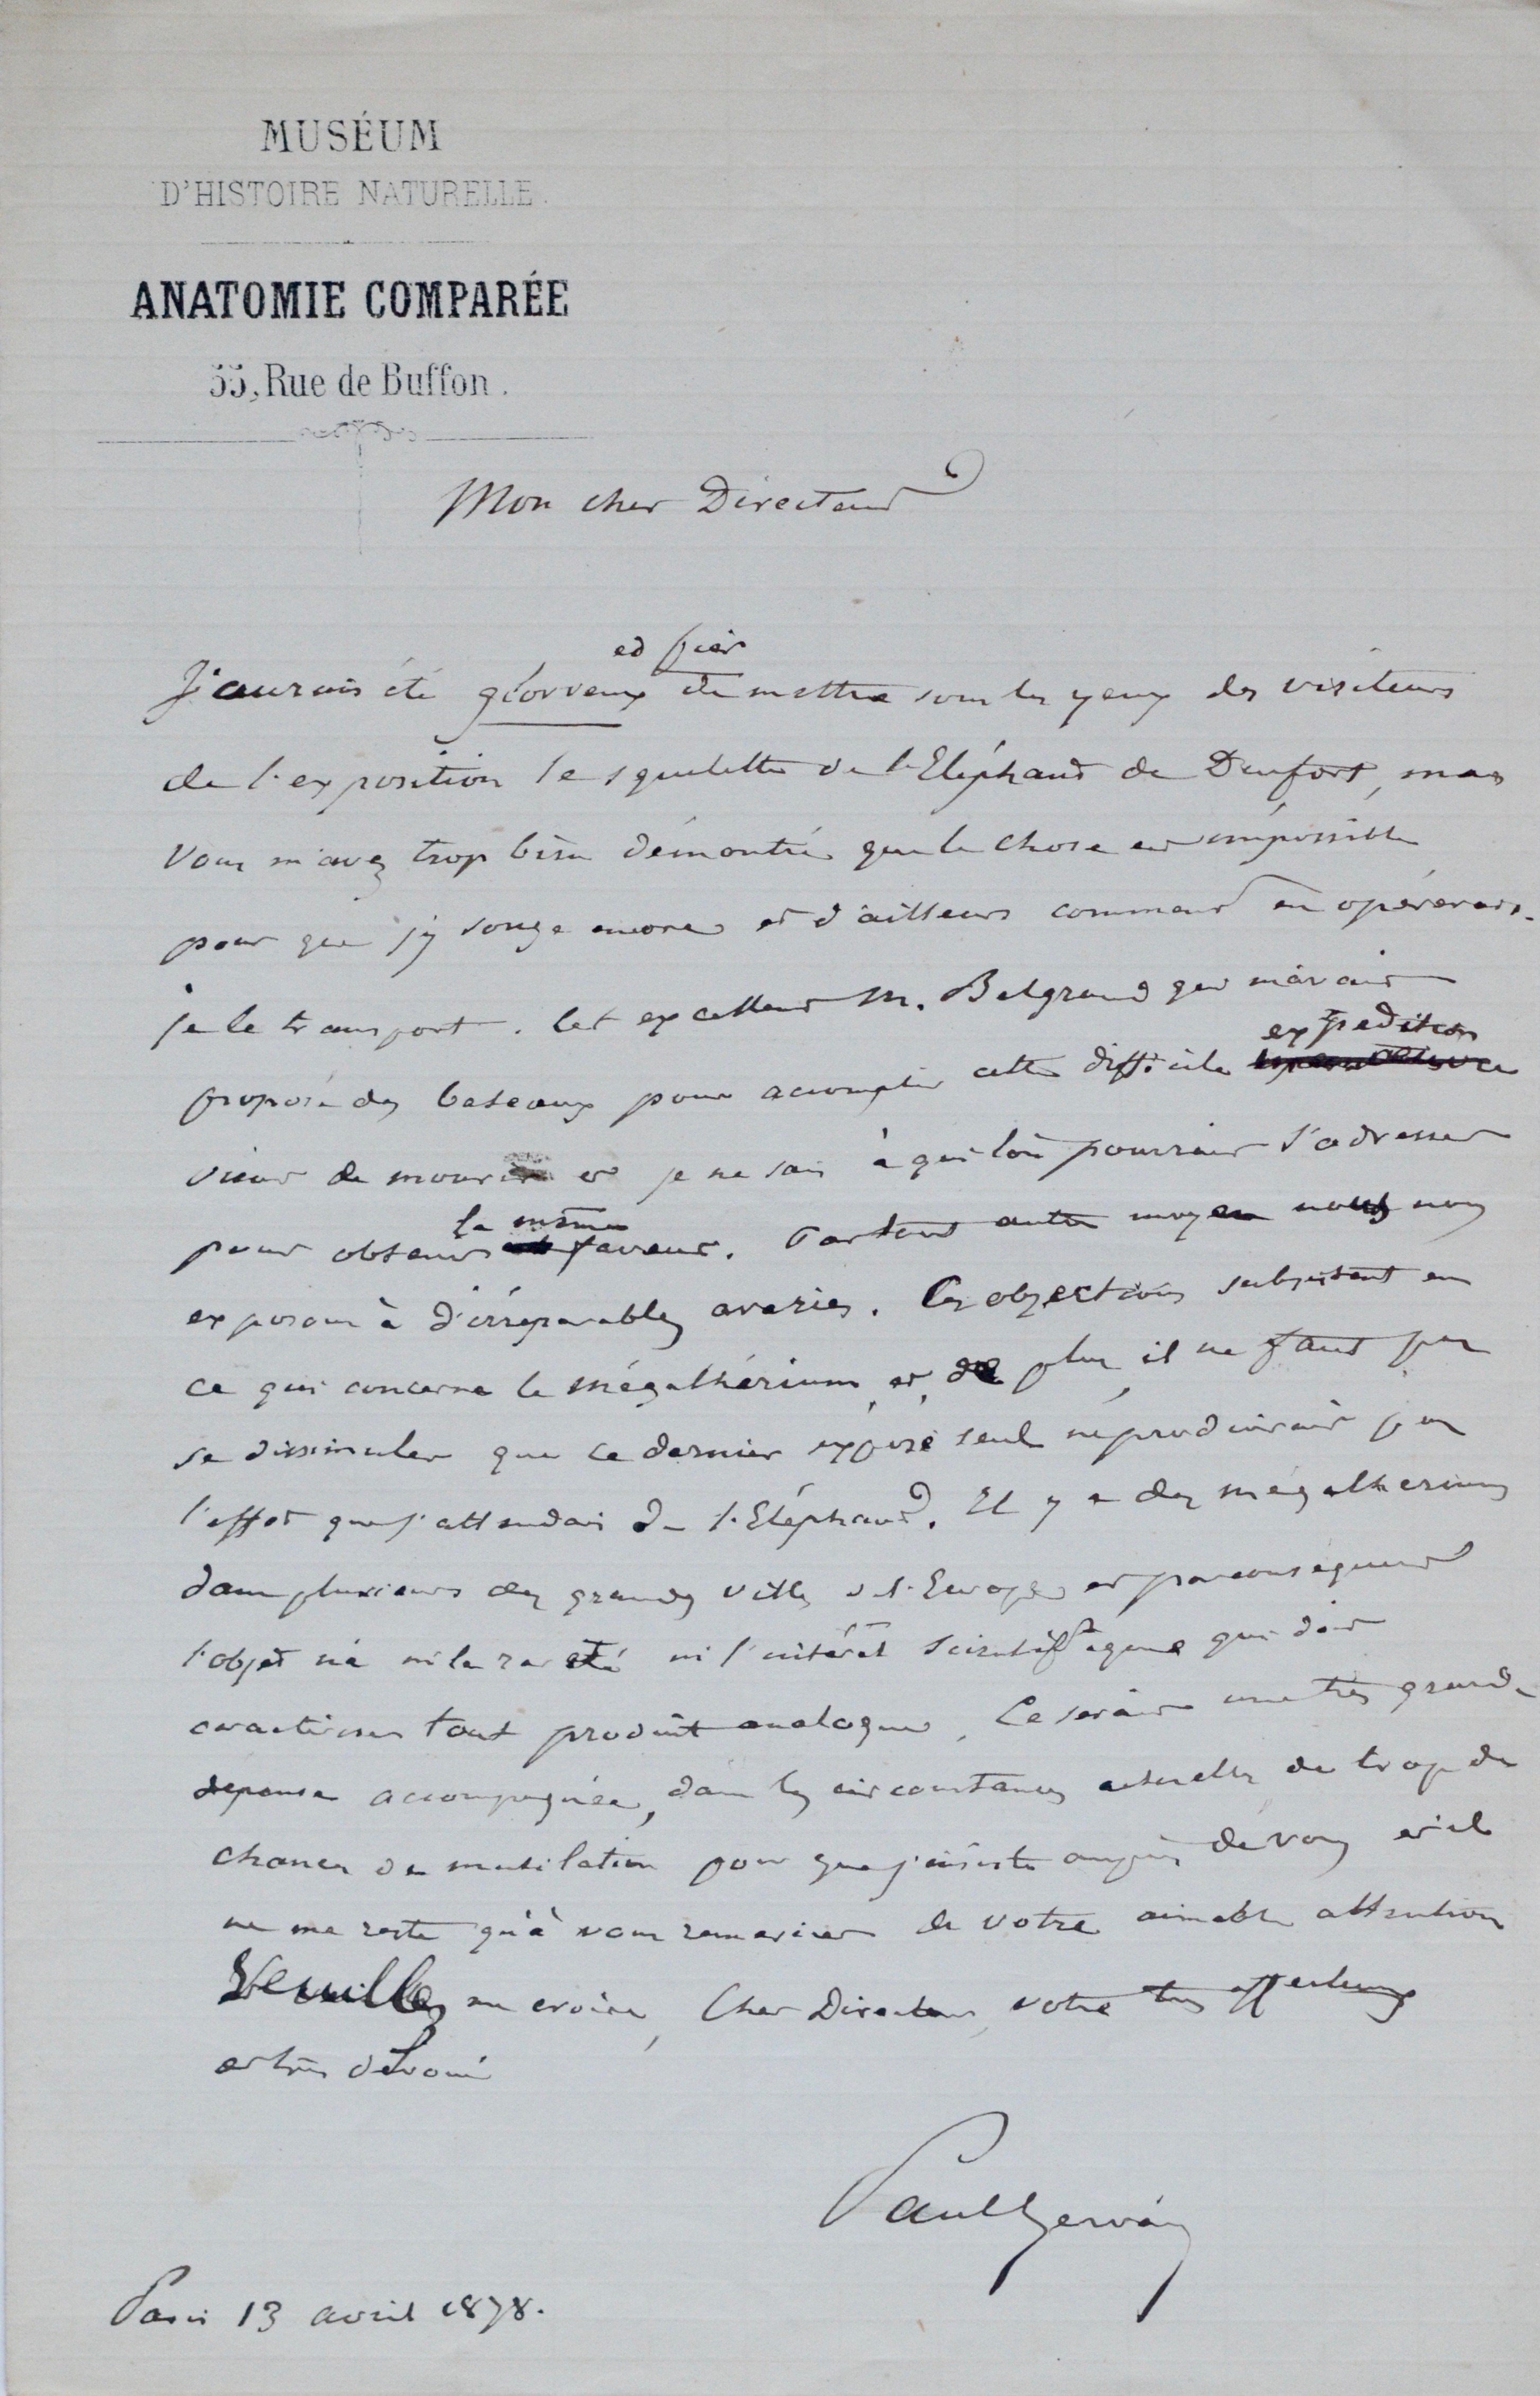 MUSÉUM
D'HISTOIRE NATURELLE.
ANATOMIE COMPARÉE
55, Rue de Buffon.
Mon cher Directeur
et fier
J'aurais été glorieux de mettre sous les yeux des visiteurs
de l'exposition le squelette de l'Eléphant de Durfort, mais
vous m'avez trop bien démontré que la chose est impossible
pour que j'y songe encore et d'ailleurs comment en opérerais-
je le transport. Cet excellent M. Belgrand qui m'avait
expedition
proposé des bateaux pour accomplir cette difficile
vient de mourir et je ne sais à qui l'on pourrait s'adresser
la même
pour obtenir faveur. Par tout autre moyen nous nous
exposons à d'irréparables avaries. Ces objections subsistent en
ce qui concerne le mégathérium et, de plus, il ne faut pas
se dissimuler que ce dernier exposé seul ne produirait pas
l'effet que j'attendais de l'Eléphant. Il y a des mégatheriums
dans plusieurs des grandes villes de l'Europe et par conséquent
l'objet n'a ni la rareté ni l'intérêt scientifique qui doit
caractériser tout produit analogue. Ce serait une très grande
depense accompagnée, dans les circonstances actuelles de trop de
chances de mutilation pour que j'insiste auprès de vous et il
ne me reste qu'à vous remercier de votre aimable attention
Veuillez me croire, Cher Directeur, votre très affectueux
et très dévoué
Paul Gervais
Paris 13 avril 1878.